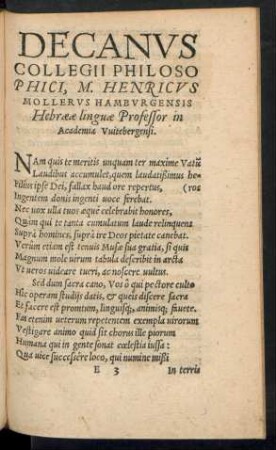 DECANVS
COLLEGII PHILOSO
PHICI, M. HENRICVS
MOLLERVS HAMBVRGENSIS
Hebrææ linguæ Professor in
Academia Vuitebergensi.
NAm quis te meritis unquam ter maxime Vatũ
Laudibus accumulet, quem laudatissimus he-
Filius ipse Dei, fallax haud ore repertus, (ros
Ingentem donis ingenti uoce ferebat.
Nec uox ulla tuos æquè celebrabit honores,
Quàm qui te tanta cumulatum laude relinquens
Suprà homines, suprà tres Deos pietate canebat.
Verùm etiam est tenuis Musæ sua gratia, si quis
Magnum mole uirum tabula describit in arcta
Vt ueros uideare tueri, ac noscere uultus.
Sed dum sacra cano, Vos ô qui pectore culto
Hic operam studijs datis, & queis discere sacra
Et facere est promtum, linguisq;, animisq; fauete.
Fas etenim ueterum repetentem exempla uirorum
Vestigare animo quid sit chorus ille piorum
Humana qui in gente sonat cœlestia iussa:
Quá uice successêre loco, qui numine missi
E 3 In terris